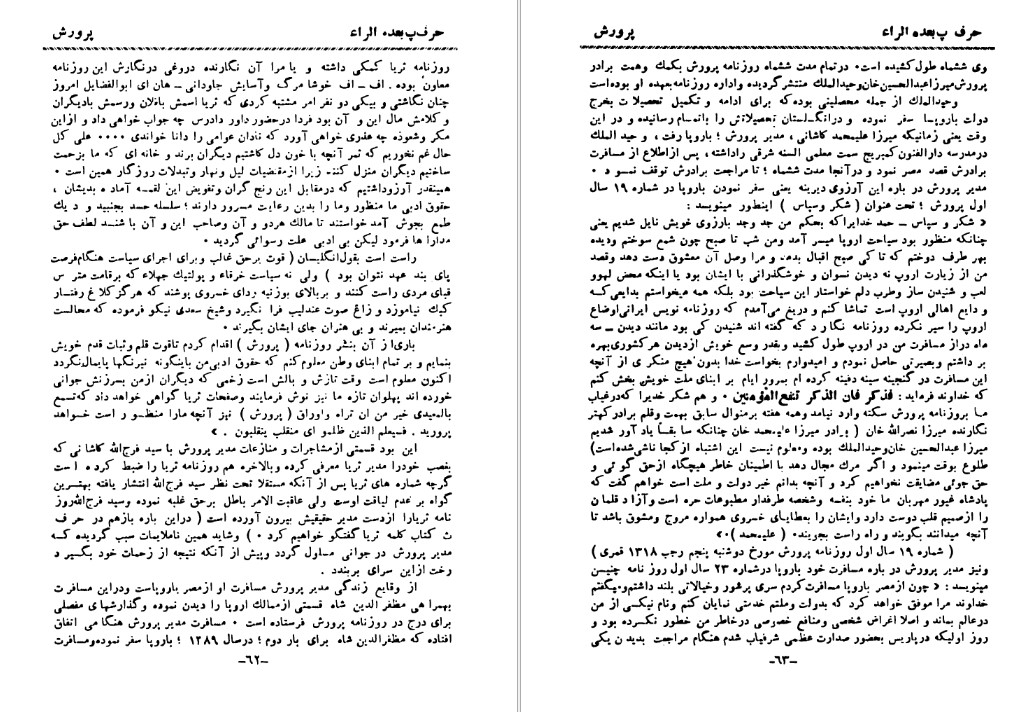 حرف پ بعده الراء    پرورش
روزنامه ثریا کمکی داشته و یا مرا آن نگارنده دروغی در نگارش این روزنامه
معاون بوده . اف ـ اف خوشا مرگ و آسایش جاودانی ـ هان ای ابوالفضایل امروز
چنان نگاشتی و بیکی دو نفر امر مشتبه کردی که ثریا اسمش باذلان ورسمش بادیگران
و کلامش مال این و آن بود فردا در حضور داور دادرس چه جواب خواهی داد و از این
مکر و شعوذه چه عذری خواهی آورد که نادان عوامی را دانا خواندی ۰۰۰۰ علی کل
حال غم نخوریم که ثمر آنچه با خون دل کاشتیم دیگران برند و خانه ای که ما بزحمت
ساختیم دیگران منزل کنند زیرا از مقتضیات لیل و نهار و تبدلات روزگار همین است ۰
همینقدر آرزو داشتیم که در مقابل این رنج گران و تفویض این لقمه آماده بدیشان ،
حقوق ادبی ما منظور وما را بدین رعایت مسرور دارند ؛ سلسله حسد بجنبید و دیک
طمع بجوش آمد خواستند تا مالک هردو و آن وصاحب این و آن باشند لطف حق
مداراها فرمود لیکن بی ادبی علت رسوائی گردید ۰
راست است بقول انگلیسان ( قوت برحق غالب و برای اجرای سیاست هنگام فرصت
پای بند عهد نتوان بود ) ولی نه سیاست خرقاء و پولتیک جهلاء که برقامت مترس
قبای مردی راست کنند و بر بالای بوزنیه ردای خسروی پوشند که هرگز کلاغ رفتار
کبك نیاموزد و زاغ صوت عندلیب فرا نگیرد وشیخ سعدی نیکو فرموده که محالست
هنرمندان بمیرند و بی هنران جای ایشان بگیرند ۰
باری از آن بنشر روزنامه ( پرورش ) اقدام کردم تاقوت قلم وثبات قدم خویش
بنمایم و بر تمام ابنای وطن معلوم کنم که حقوق ادبی من باینگونه نیرنگها پایمال نگردد
اکنون معلوم است وقت تازش و بالش است زخمی که دیگران از من بسرزنش جوانی
خورده اند پهلوان تازه ما نیز نوش فرمایند وصفحات ثریا گواهی خواهد داد که تسمع
بالمعیدی خیر من ان تراه واوراق ( پرورش ) نیز آنچه مارا منظور است خواهد
پرورید . فسیعلم الذین ظلموا ای منقلب ینقلبون . »
این بود قسمتی از مشاجرات و منازعات مدیر پرورش با سید فرج‌الله کاشانی که
بغصب خودرا مدیر ثریا معرفی کرده وبالاخره هم روزنامه ثریا را ضبط کرده است
گرچه شماره های ثریا پس از آنکه مستقلا تحت نظر سید فرج‌الله انتشار یافته بهترین
گواه بر عدم لیاقت اوست ولی عاقبت الامر باطل برحق غلبه نموده وسید فرج‌الله روز
نامه ثریارا ازدست مدیر حقیقیش بیرون آورده است ( دراین باره بازهم در حرف
ث کتاب کلمه ثریا گفتگو خواهیم کرد ۰ ) وشاید همین ناملایمات سبب گردیده که
مدیر پرورش در جوانی مسلول گردد وپیش از آنکه نتیجه از زحمات خود بگیرد
رخت ازاین سرای بربندد .
از وقایع زندگی مدیر پرورش مسافرت او از مصر باروپاست ودراین مسافرت
بهمراهی مظفرالدین شاه قسمتی از ممالک اروپا را دیدن نموده وگذارشهای مفصلی
برای درج در روزنامه پرورش فرستاده است ۰ مسافرت مدیر پرورش هنگامی اتفاق
افتاده که مظفرالدین شاه برای بار دوم ؛ درسال ۱۲۸۹ ؛ باروپا سفر نموده ومسافرت
-۶۲-
حرف پ بعده الراء    پرورش
وی ششماه طول کشیده است ۰ در تمام مدت ششماه روزنامه پرورش بکمک وهمت برادر
پرورش میرزا عبدالحسین خان وحیدالملک منتشر گردیده واداره روزنامه بعهده او بوده است
وحیدالملک از جمله محصلینی بوده که برای ادامه و تکمیل تحصیلات بخرج
دولت باروپا سفر نموده و در انگلستان تحصیلاتش را باتمام رسانیده و در این
وقت یعنی زمانیکه میرزا علیمحمد کاشانی ، مدیر پرورش ؛ باروپا رفت ، وحیدالملک
در مدرسه دارالفنون کمبریج سمت معلمی السنه شرقی راداشته ، پس از اطلاع از مسافرت
برادرش قصد مصر نمود و در آنجا مدت ششماه ؛ تا مراجعت برادرش توقف نمود ۰
مدیر پرورش در باره این آرزوی دیرینه یعنی سفر نمودن باروپا در شماره ۱۹ سال
اول پرورش ؛ تحت عنوان ( شکر وسپاس ) اینطور مینویسد :
« شکر و سپاس ـ حمد خدایرا که بحکم من جد وجد بارزوی خویش نایل شدیم یعنی
چنانکه منظور بود سیاحت اروپا میسر آمد ومن شب تا صبح چون شمع سوختم ودیده
بهر طرف دوختم که تا کی صبح اقبال بدمد و مرا وصل آن معشوق دست دهد وقصد
من از زیارت اروپ نه دیدن نسوان و خوشگذرانی با ایشان بود یا اینکه محض لهوو
لعب و شنیدن ساز وطرب دلم خواستار این سیاحت بود بلکه همه میخواستم بدایعی که
و دایع اهالی اروپ است تماشا کنم و دریغ می‌آمدم که روزنامه نویس ایرانی اوضاع
اروپ را سیر نکرده روزنامه نگارد که گفته اند شنیدن کی بود مانند دیدن ـ سه
ماه دراز مسافرت من در اروپ طول کشید و بقدر وسع خویش از دیدن هر کشوری بهره
بر داشتم و بصیرتی حاصل نمودم و امیدوارم بخواست خدا بدون هیچ منکری از آنچه
این مسافرت در گنجینه سینه دفینه کرده ام بمرور ایام بر ابنای ملت خویش بخش کنم
که خداوند فرماید : فذکر فان الذکر تنفع المؤمنین ۰ و هم شکر خدیرا که در غیاب
ما بروزنامه پرورش سکته وارد نیامد وهمه هفته بر منوال سابق بهمت وقلم برادر کهتر
نگارنده میرزا نصرالله خان ( برادر میرزا علیمحمد خان چنانکه سابقا یادآور شدیم
میرزا عبدالحسین خان وحیدالملک بوده ومعلوم نیست این اشتباه از کجا ناشی شده است)
طلوع بوقت مینمود و اگر مرك مجال دهد با اطمینان خاطر هیچگاه از حق گوئی و
حق جوئی مضایقت نخواهیم کرد و آنچه بدانم خیر دولت و ملت است خواهم گفت که
پادشاه غیور مهربان ما خود بنفسه وشخصه طرفدار مطبوعات حره است و آزاد قلمان
را از صمیم قلب دوست دارد و ایشان را بعطایای خسروی همواره مروج ومشوق باشد تا
آنچه میدانند بگویند و راه راست بجویند ۰ ( علیمحمد )۰»
( شماره ۱۹ سال اول روزنامه پرورش مورخ دوشنبه پنجم رجب ۱۳۱۸ قمری )
ونیز مدیر پرورش در باره مسافرت خود باروپا در شماره ۲۳ سال اول روز نامه چنین
مینویسد : « چون از مصر باروپا مسافرت کردم سری پرشور وخیالاتی بلند داشتم ومیگفتم
خداوند مرا موفق خواهد کرد که بدولت وملتم خدمتی نمایان کنم ونام نیکی از من
در عالم بماند و اصلا اغراض شخصی ومنافع خصوصی در خاطر من خطور نکرده بود و
روز اولیکه در پاریس بحضور صدارت عظمی شرفیاب شدم هنگام مراجعت بدیدن یکی
-۶۳-